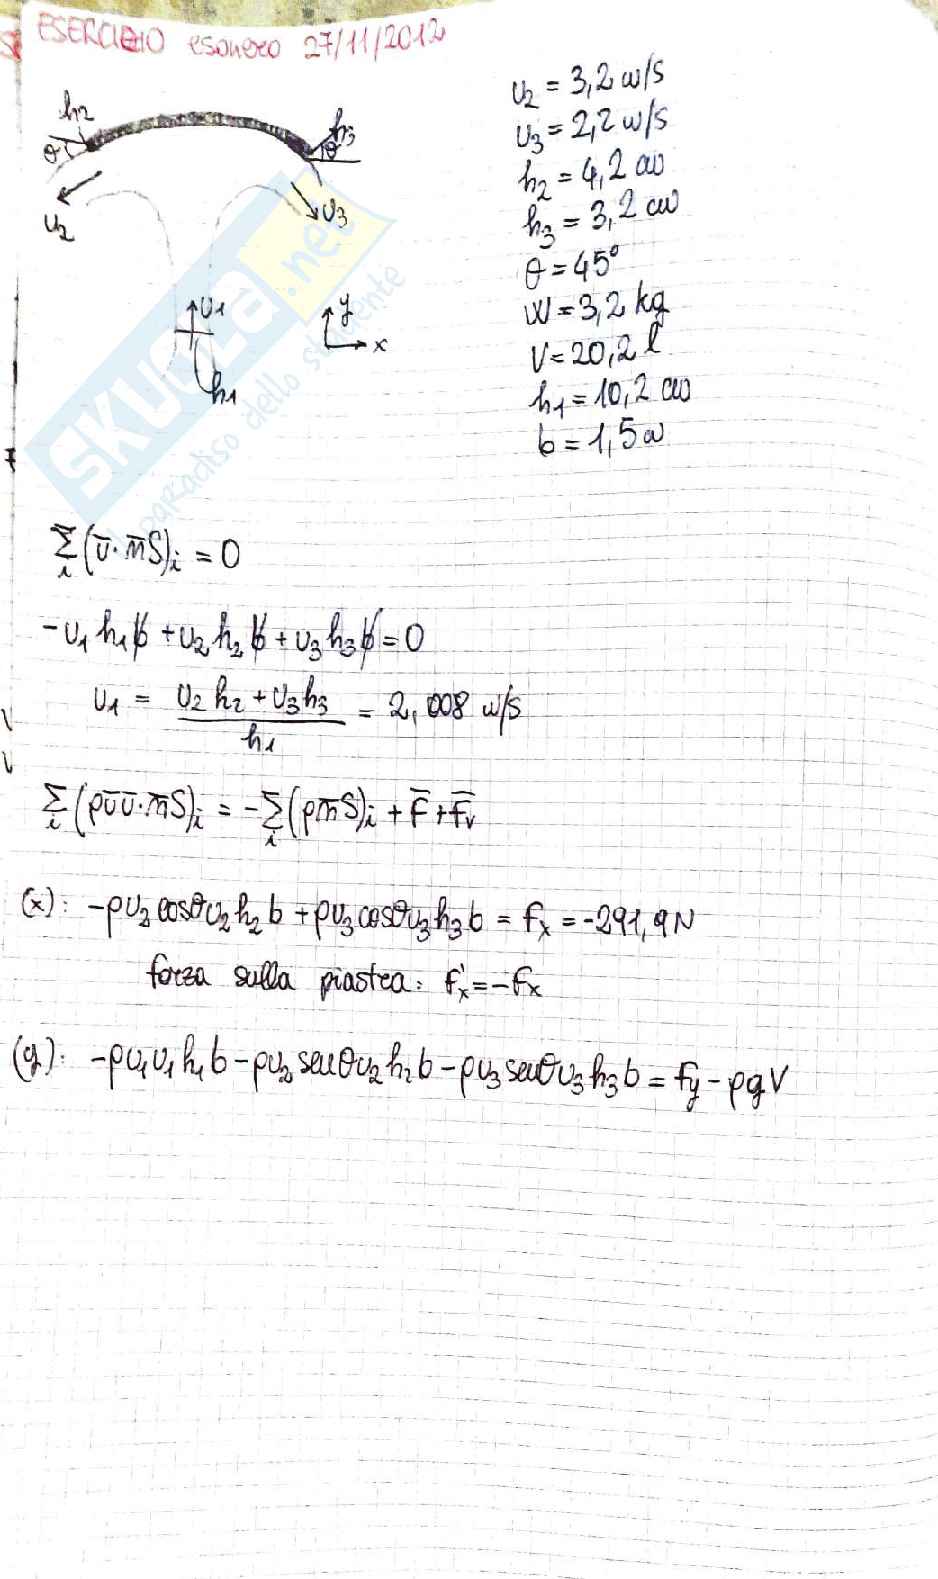 ESERCIZIO esonero 27/11/2012
h2
h3
θ
θ
v2
v3
v1
h1
y
x
v2 = 3,2 m/s
v3 = 2,2 m/s
h2 = 4,2 cm
h3 = 3,2 cm
θ = 45°
W = 3,2 kg
V = 20,2 l
h1 = 10,2 cm
b = 1,5 m
SKUOLA.net
il paradiso dello studente
Σi (v̄·n̄S)i = 0
-v1 h1 b + v2 h2 b + v3 h3 b = 0
v1 = (v2 h2 + v3 h3) / h1 = 2,008 m/s
Σi (ρv̄ v̄·n̄S)i = -Σi (pn̄S)i + F̄ + F̄v
(x): -ρv2 cosθ v2 h2 b + ρv3 cosθ v3 h3 b = Fx = -291,9 N
forza sulla piastra: F'x = -Fx
(y): -ρv1 v1 h1 b - ρv2 senθ v2 h2 b - ρv3 senθ v3 h3 b = Fy - ρgV